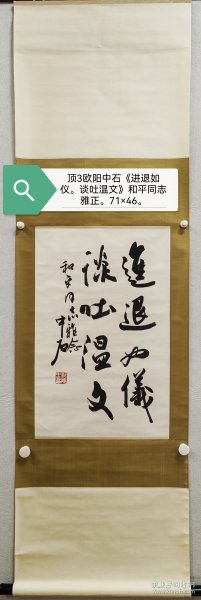 顶3欧阳中石《进退如
仪。谈吐温文》和平同志
雅正。71×46。
進退如儀
談吐温文
和平同志雅念
中石